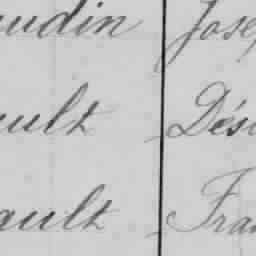 udin Jose
ult Dés
ault Fra